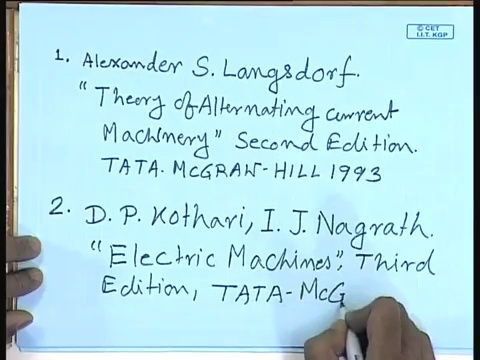 © CET
I.I.T. KGP
1. Alexander S. Langsdorf.
"Theory of Alternating current
Machinery" Second Edition.
TATA. McGRAW-HILL 1993
2. D. P. Kothari, I. J. Nagrath.
"Electric Machines", Third
Edition, TATA-McG